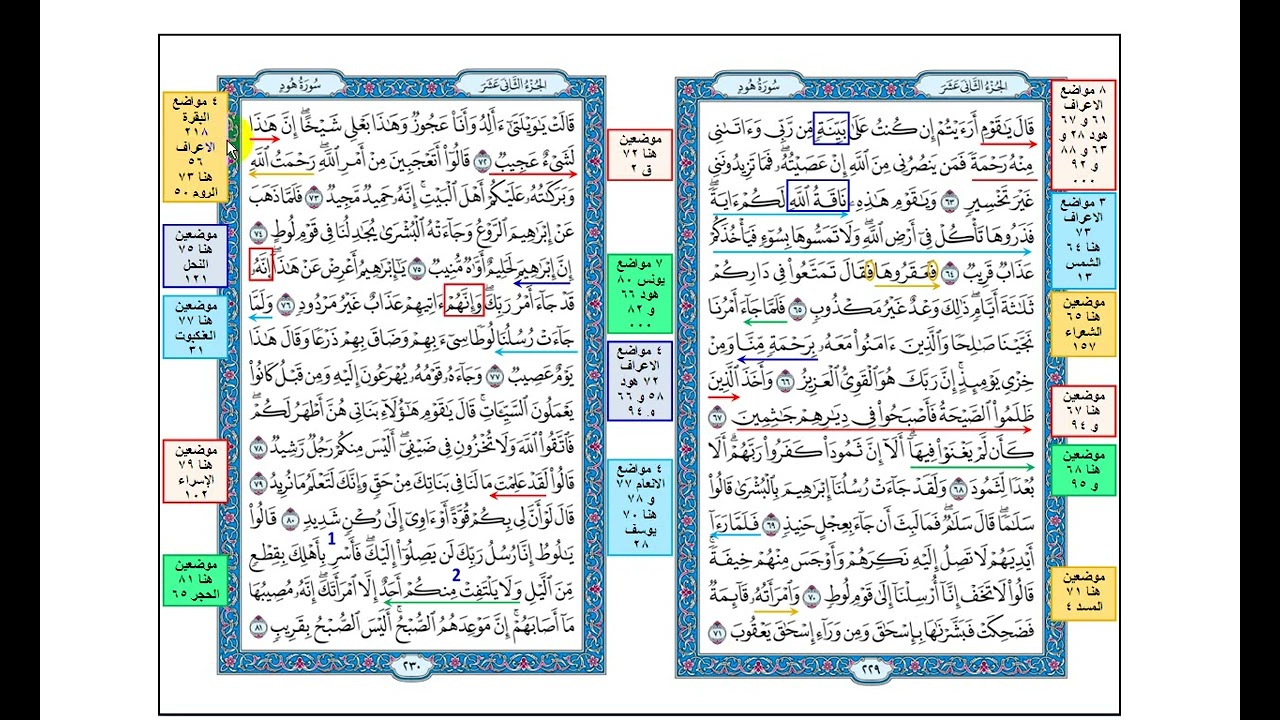 الجُزْءُ الثَّانِي عَشَرَ
سُورَةُ هُودٍ
قَالَ يَٰقَوْمِ أَرَءَيْتُمْ إِن كُنتُ عَلَىٰ بَيِّنَةٍ مِّن رَّبِّي وَءَاتَىٰنِي
مِنْهُ رَحْمَةً فَمَن يَنصُرُنِي مِنَ ٱللَّهِ إِنْ عَصَيْتُهُۥ ۖ فَمَا تَزِيدُونَنِي
غَيْرَ تَخْسِيرٍ ٦٣ وَيَٰقَوْمِ هَٰذِهِۦ نَاقَةُ ٱللَّهِ لَكُمْ ءَايَةً ۖ
فَذَرُوهَا تَأْكُلْ فِىٓ أَرْضِ ٱللَّهِ ۖ وَلَا تَمَسُّوهَا بِسُوٓءٍ فَيَأْخُذَكُمْ
عَذَابٌ قَرِيبٌ ٦٤ فَعَقَرُوهَا فَقَالَ تَمَتَّعُوا۟ فِى دَارِكُمْ
ثَلَٰثَةَ أَيَّامٍ ۖ ذَٰلِكَ وَعْدٌ غَيْرُ مَكْذُوبٍ ٦٥ فَلَمَّا جَآءَ أَمْرُنَا
نَجَّيْنَا صَٰلِحًا وَٱلَّذِينَ ءَامَنُوا۟ مَعَهُۥ بِرَحْمَةٍ مِّنَّا وَمِنْ
خِزْىِ يَوْمِئِذٍ ۗ إِنَّ رَبَّكَ هُوَ ٱلْقَوِىُّ ٱلْعَزِيزُ ٦٦ وَأَخَذَ ٱلَّذِينَ
ظَلَمُوا۟ ٱلصَّيْحَةُ فَأَصْبَحُوا۟ فِى دِيَٰرِهِمْ جَٰثِمِينَ ٦٧
كَأَن لَّمْ يَغْنَوْا۟ فِيهَآ ۗ أَلَآ إِنَّ ثَمُودَا۟ كَفَرُوا۟ رَبَّهُمْ ۗ أَلَا
بُعْدًا لِّثَمُودَ ٦٨ وَلَقَدْ جَآءَتْ رُسُلُنَآ إِبْرَٰهِيمَ بِٱلْبُشْرَىٰ قَالُوا۟
سَلَٰمًا ۖ قَالَ سَلَٰمٌ ۖ فَمَا لَبِثَ أَن جَآءَ بِعِجْلٍ حَنِيذٍ ٦٩ فَلَمَّا رَءَآ
أَيْدِيَهُمْ لَا تَصِلُ إِلَيْهِ نَكِرَهُمْ وَأَوْجَسَ مِنْهُمْ خِيفَةً ۚ
قَالُوا۟ لَا تَخَفْ إِنَّآ أُرْسِلْنَآ إِلَىٰ قَوْمِ لُوطٍ ٧٠ وَٱمْرَأَتُهُۥ قَآئِمَةٌ
فَضَحِكَتْ فَبَشَّرْنَٰهَا بِإِسْحَٰقَ وَمِن وَرَآءِ إِسْحَٰقَ يَعْقُوبَ ٧١
٢٢٩
٨ مواضع
الاعراف
٦١ و ٦٧
هود ٢٨ و
٦٣ و ٨٨
و ٩٢
٠٠٠
٣ مواضع
الاعراف
٧٣
هنا ٦٤
الشمس
١٣
موضعين
هنا ٦٥
الشعراء
١٥٧
موضعين
هنا ٦٧
و ٩٤
موضعين
هنا ٦٨
و ٩٥
موضعين
هنا ٧١
المسد ٤
موضعين
هنا ٧٢
ق ٢
٧ مواضع
يونس ٨٠
هود ٦٦
و ٨٢
٠٠٠
٤ مواضع
الاعراف
٧٢ هود
٥٨ و ٦٦
و ٩٤
٤ مواضع
الانعام ٧٧
و ٧٨
هنا ٧٠
يوسف
٢٨
الجُزْءُ الثَّانِي عَشَرَ
سُورَةُ هُودٍ
قَالَتْ يَٰوَيْلَتَىٰٓ ءَأَلِدُ وَأَنَا۠ عَجُوزٌ وَهَٰذَا بَعْلِى شَيْخًا ۖ إِنَّ هَٰذَا
لَشَىْءٌ عَجِيبٌ ٧٢ قَالُوٓا۟ أَتَعْجَبِينَ مِنْ أَمْرِ ٱللَّهِ ۖ رَحْمَتُ ٱللَّهِ
وَبَرَكَٰتُهُۥ عَلَيْكُمْ أَهْلَ ٱلْبَيْتِ ۚ إِنَّهُۥ حَمِيدٌ مَّجِيدٌ ٧٣ فَلَمَّا ذَهَبَ
عَنْ إِبْرَٰهِيمَ ٱلرَّوْعُ وَجَآءَتْهُ ٱلْبُشْرَىٰ يُجَٰدِلُنَا فِى قَوْمِ لُوطٍ ٧٤
إِنَّ إِبْرَٰهِيمَ لَحَلِيمٌ أَوَّٰهٌ مُّنِيبٌ ٧٥ يَٰٓإِبْرَٰهِيمُ أَعْرِضْ عَنْ هَٰذَآ ۖ إِنَّهُۥ
قَدْ جَآءَ أَمْرُ رَبِّكَ ۖ وَإِنَّهُمْ ءَاتِيهِمْ عَذَابٌ غَيْرُ مَرْدُودٍ ٧٦ وَلَمَّا
جَآءَتْ رُسُلُنَا لُوطًا سِىٓءَ بِهِمْ وَضَاقَ بِهِمْ ذَرْعًا وَقَالَ هَٰذَا
يَوْمٌ عَصِيبٌ ٧٧ وَجَآءَهُۥ قَوْمُهُۥ يُهْرَعُونَ إِلَيْهِ وَمِن قَبْلُ كَانُوا۟
يَعْمَلُونَ ٱلسَّيِّـَٔاتِ ۚ قَالَ يَٰقَوْمِ هَٰٓؤُلَآءِ بَنَاتِى هُنَّ أَطْهَرُ لَكُمْ ۖ
فَٱتَّقُوا۟ ٱللَّهَ وَلَا تُخْزُونِ فِى ضَيْفِىٓ ۖ أَلَيْسَ مِنكُمْ رَجُلٌ رَّشِيدٌ ٧٨
قَالُوا۟ لَقَدْ عَلِمْتَ مَا لَنَا فِى بَنَاتِكَ مِنْ حَقٍّ وَإِنَّكَ لَتَعْلَمُ مَا نُرِيدُ ٧٩
قَالَ لَوْ أَنَّ لِى بِكُمْ قُوَّةً أَوْ ءَاوِىٓ إِلَىٰ رُكْنٍ شَدِيدٍ ٨٠ قَالُوا۟
يَٰلُوطُ إِنَّا رُسُلُ رَبِّكَ لَن يَصِلُوٓا۟ إِلَيْكَ ۖ فَأَسْرِ بِأَهْلِكَ بِقِطْعٍ
1
مِّنَ ٱلَّيْلِ وَلَا يَلْتَفِتْ مِنكُمْ أَحَدٌ إِلَّا ٱمْرَأَتَكَ ۖ إِنَّهُۥ مُصِيبُهَا
2
مَآ أَصَابَهُمْ ۚ إِنَّ مَوْعِدَهُمُ ٱلصُّبْحُ ۚ أَلَيْسَ ٱلصُّبْحُ بِقَرِيبٍ ٨١
٢٣٠
٤ مواضع
البقرة
٢١٨
الاعراف
٥٦
هنا ٧٣
الروم ٥٠
موضعين
هنا ٧٥
النحل
١٢١
موضعين
هنا ٧٧
العنكبوت
٣١
موضعين
هنا ٧٩
الإسراء
١٠٢
موضعين
هنا ٨١
الحجر ٦٥